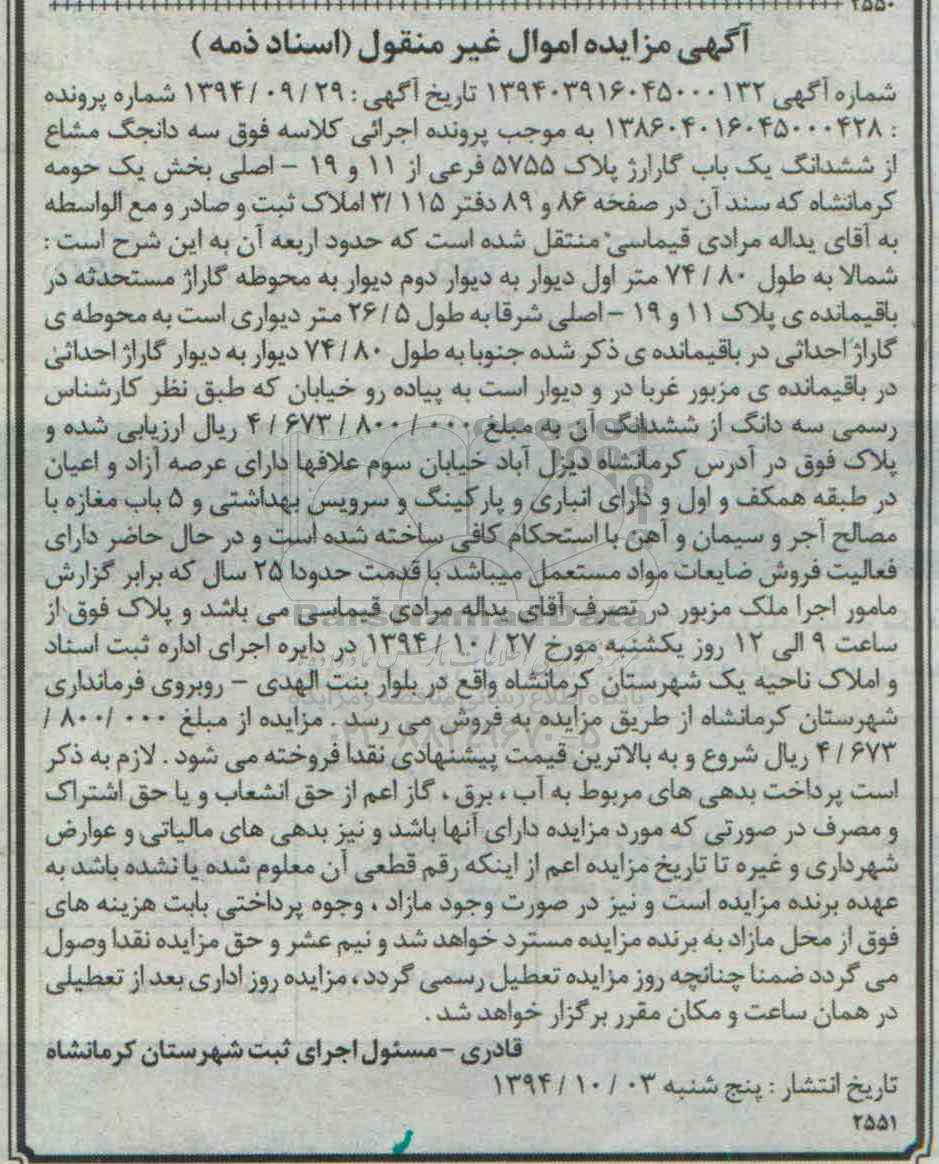 ۲۵۵۰
آگهی مزایده اموال غیر منقول (اسناد ذمه )
شماره آگهی ۱۳۹۴۰۳۹۱۶۰۴۵۰۰۰۱۳۲ تاریخ آگهی : ۱۳۹۴/۰۹/۲۹ شماره پرونده
: ۱۳۸۶۰۴۰۱۶۰۴۵۰۰۰۴۲۸ به موجب پرونده اجرائی کلاسه فوق سه دانجگ مشاع
از ششدانگ یک باب گارارژ پلاک ۵۷۵۵ فرعی از ۱۱ و ۱۹ - اصلی بخش یک حومه
کرمانشاه که سند آن در صفحه ۸۶ و ۸۹ دفتر ۱۱۵ /۳ املاک ثبت و صادر و مع الواسطه
به آقای یداله مرادی قیماسی منتقل شده است که حدود اربعه آن به این شرح است :
شمالا به طول ۷۴/۸۰ متر اول دیوار به دیوار دوم دیوار به محوطه گاراژ مستحدثه در
باقیمانده ی پلاک ۱۱ و ۱۹ - اصلی شرقا به طول ۲۶/۵ متر دیواری است به محوطه ی
گاراژ احداثی در باقیمانده ی ذکر شده جنوبا به طول ۷۴/۸۰ دیوار به دیوار گاراژ احداثی
در باقیمانده ی مزبور غربا در و دیوار است به پیاده رو خیابان که طبق نظر کارشناس
رسمی سه دانگ از ششدانگ آن به مبلغ ۴/۶۷۳/۸۰۰/۰۰۰ ریال ارزیابی شده و
پلاک فوق در آدرس کرمانشاه دیزل آباد خیابان سوم علافها دارای عرصه آزاد و اعیان
در طبقه همکف و اول و دارای انباری و پارکینگ و سرویس بهداشتی و ۵ باب مغازه با
مصالح آجر و سیمان و آهن با استحکام کافی ساخته شده است و در حال حاضر دارای
فعالیت فروش ضایعات مواد مستعمل میباشد با قدمت حدودا ۲۵ سال که برابر گزارش
مامور اجرا ملک مزبور در تصرف آقای یداله مرادی قیماسی می باشد و پلاک فوق از
ساعت ۹ الی ۱۲ روز یکشنبه مورخ ۱۳۹۴/۱۰/۲۷ در دایره اجرای اداره ثبت اسناد
و املاک ناحیه یک شهرستان کرمانشاه واقع در بلوار بنت الهدی - روبروی فرمانداری
شهرستان کرمانشاه از طریق مزایده به فروش می رسد . مزایده از مبلغ ۸۰۰/۰۰۰ /
۴/۶۷۳ ریال شروع و به بالاترین قیمت پیشنهادی نقدا فروخته می شود . لازم به ذکر
است پرداخت بدهی های مربوط به آب ، برق ، گاز اعم از حق انشعاب و یا حق اشتراک
و مصرف در صورتی که مورد مزایده دارای آنها باشد و نیز بدهی های مالیاتی و عوارض
شهرداری و غیره تا تاریخ مزایده اعم از اینکه رقم قطعی آن معلوم شده یا نشده باشد به
عهده برنده مزایده است و نیز در صورت وجود مازاد ، وجوه پرداختی بابت هزینه های
فوق از محل مازاد به برنده مزایده مسترد خواهد شد و نیم عشر و حق مزایده نقدا وصول
می گردد ضمنا چنانچه روز مزایده تعطیل رسمی گردد، مزایده روز اداری بعد از تعطیلی
در همان ساعت و مکان مقرر برگزار خواهد شد .
قادری - مسئول اجرای ثبت شهرستان کرمانشاه
تاریخ انتشار : پنج شنبه ۱۳۹۴/۱۰/۰۳
۲۵۵۱